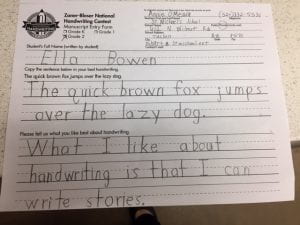 Zaner-Bloser National
Handwriting Contest
Manuscript Entry Form
Grade K
Grade 1
Grade 2
Student's Full Name (written by student)
Ella Bowen
Copy the sentence below in your best handwriting.
The quick brown fox jumps over the lazy dog.
The quick brown fox jumps
over the lazy dog.
Please tell us what you like best about handwriting.
What I like about
handwriting is that I can
write stories.